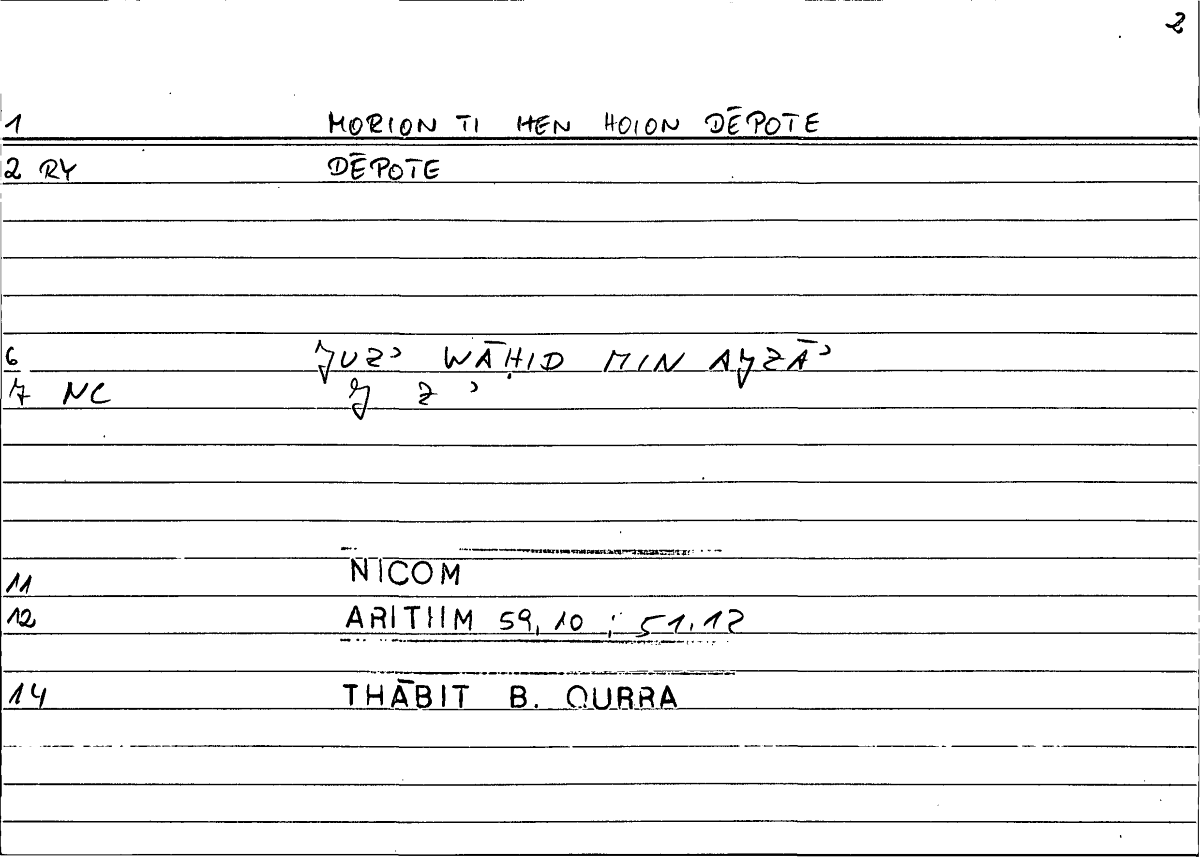 2
1 MORION TI MEN HOION DĒPOTE
2 RY DĒPOTE
6 JUZʾ WĀḤID MIN AJZĀʾ
7 NC J Z ʾ
11 NICOM
12 ARITIIM 59,10 ; 51,12
14 THĀBIT B. QURRA